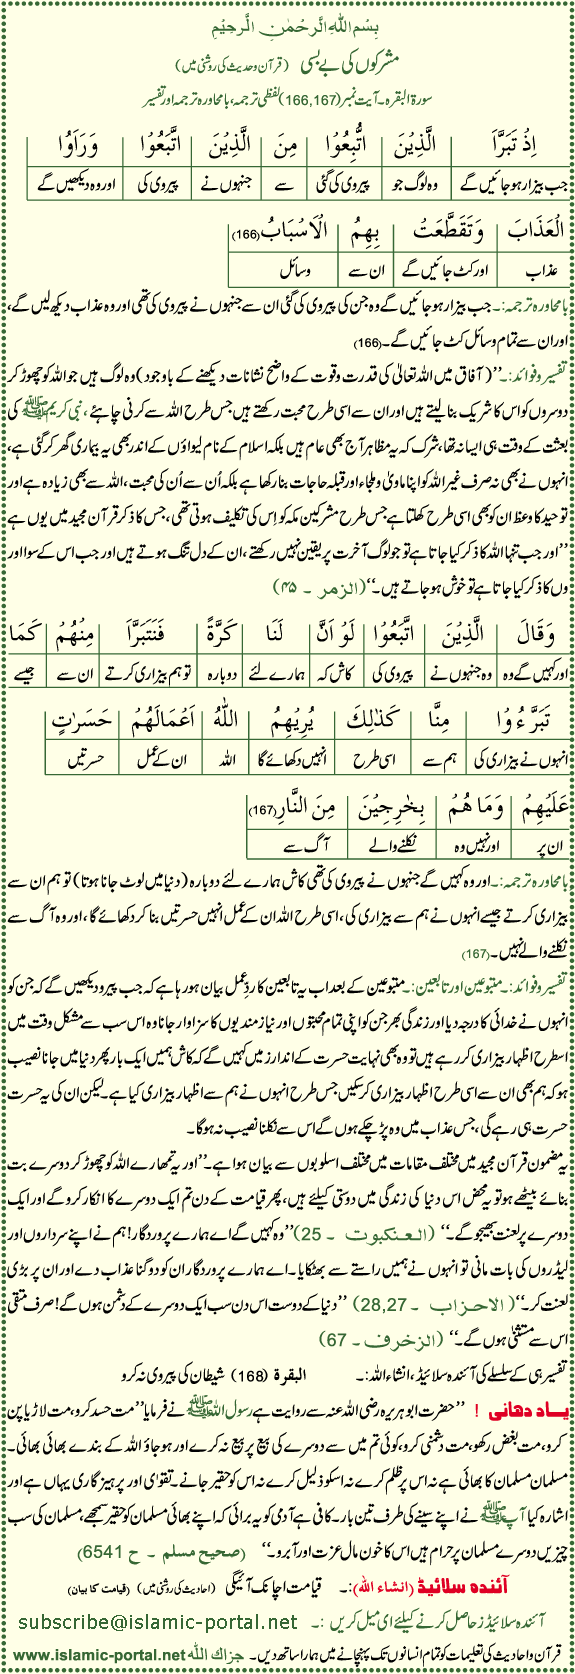 بِسْمِ اللهِ الرَّحْمٰنِ الرَّحِيْمِ
مشرکوں کی بے بسی (قرآن وحدیث کی روشنی میں)
سورۃ البقرہ۔ آیت نمبر (166,167) لفظی ترجمہ، بامحاورہ ترجمہ اور تفسیر
اِذْ تَبَرَّاَ الَّذِيْنَ اتُّبِعُوْا مِنَ الَّذِيْنَ اتَّبَعُوْا وَرَاَوُا
جب بیزار ہو جائیں گے وہ لوگ جو پیروی کی گئی سے جنہوں نے پیروی کی اور وہ دیکھیں گے
الْعَذَابَ وَتَقَطَّعَتْ بِهِمُ الْاَسْبَابُ (166)
عذاب اور کٹ جائیں گے ان سے وسائل
بامحاورہ ترجمہ:۔ جب بیزار ہو جائیں گے وہ جن کی پیروی کی گئی ان سے جنہوں نے پیروی کی تھی اور وہ عذاب دیکھ لیں گے،
اور ان سے تمام وسائل کٹ جائیں گے۔ (166)
تفسیر و فوائد:۔ ’’(آفاق میں اللہ تعالیٰ کی قدرت وقوت کے واضح نشانات دیکھنے کے باوجود) وہ لوگ ہیں جو اللہ کو چھوڑ کر
دوسروں کو اس کا شریک بنا لیتے ہیں اور ان سے اسی طرح محبت رکھتے ہیں جس طرح اللہ سے کرنی چاہئے، نبی کریم ﷺ کی
بعثت کے وقت ہی ایسا نہ تھا، شرک کہ یہ مظاہر آج بھی عام ہیں بلکہ اسلام کے نام لیواؤں کے اندر بھی یہ بیماری گھر کر گئی ہے،
انہوں نے بھی نہ صرف غیر اللہ کو اپنا ماویٰ و ملجاء اور قبلہ حاجات بنا رکھا ہے بلکہ اُن سے اُن کی محبت، اللہ سے بھی زیادہ ہے اور
توحید کا وعظ ان کو بھی اسی طرح کھلتا ہے جس طرح مشرکین مکہ کو اِس کی تکلیف ہوتی تھی، جس کا ذکر قرآن مجید میں یوں ہے
’’اور جب تنہا اللہ کا ذکر کیا جاتا ہے تو جو لوگ آخرت پر یقین نہیں رکھتے، ان کے دل تنگ ہوتے ہیں اور جب اس کے سوا اور
وں کا ذکر کیا جاتا ہے تو خوش ہو جاتے ہیں۔‘‘ (الزمر ۔ ۴۵)
وَقَالَ الَّذِيْنَ اتَّبَعُوْا لَوْ اَنَّ لَنَا كَرَّةً فَنَتَبَرَّاَ مِنْهُمْ كَمَا
اور کہیں گے وہ وہ جنہوں نے پیروی کی کاش کہ ہمارے لئے دوبارہ تو ہم بیزاری کرتے ان سے جیسے
تَبَرَّءُوْا مِنَّا كَذٰلِكَ يُرِيْهِمُ اللّٰهُ اَعْمَالَهُمْ حَسَرٰتٍ
انہوں نے بیزاری کی ہم سے اسی طرح انہیں دکھائے گا اللہ ان کے عمل حسرتیں
عَلَيْهِمْ وَمَا هُمْ بِخٰرِجِيْنَ مِنَ النَّارِ (167)
ان پر اور نہیں وہ نکلنے والے آگ سے
بامحاورہ ترجمہ:۔ اور وہ کہیں گے جنہوں نے پیروی کی تھی کاش ہمارے لئے دوبارہ (دنیا میں لوٹ جانا ہوتا) تو ہم ان سے
بیزاری کرتے جیسے انہوں نے ہم سے بیزاری کی، اسی طرح اللہ ان کے عمل انہیں حسرتیں بنا کر دکھائے گا، اور وہ آگ سے
نکلنے والے نہیں۔ (167)
تفسیر و فوائد:۔ متبوعین اور تابعین:۔ متبوعین کے بعد اب یہ تابعین کا ردِعمل بیان ہو رہا ہے کہ جب پیرو دیکھیں گے کہ جن کو
انہوں نے خدائی کا درجہ دیا اور زندگی بھر جن کو اپنی تمام محبتوں اور نیاز مندیوں کا سزاوار جانا وہ اس سب سے مشکل وقت میں
اسطرح اظہار بیزاری کر رہے ہیں تو وہ بھی نہایت حسرت کے انداز میں کہیں گے کہ کاش ہمیں ایک بار پھر دنیا میں جانا نصیب
ہو کہ ہم بھی ان سے اسی طرح اظہار بیزاری کر سکیں جس طرح انہوں نے ہم سے اظہار بیزاری کیا ہے۔ لیکن ان کی یہ حسرت
حسرت ہی رہے گی، جس عذاب میں وہ پڑ چکے ہوں گے اس سے نکلنا نصیب نہ ہوگا۔
یہ مضمون قرآن مجید میں مختلف مقامات میں مختلف اسلوبوں سے بیان ہوا ہے۔ ’’اور یہ تمھارے اللہ کو چھوڑ کر دوسرے بت
بنائے بیٹھے ہو تو یہ محض اس دنیا کی زندگی میں دوستی کیلئے ہیں، پھر قیامت کے دن تم ایک دوسرے کا انکار کرو گے اور ایک
دوسرے پر لعنت بھیجو گے۔‘‘ (العنکبوت ۔ 25) ’’وہ کہیں گے اے ہمارے پروردگار! ہم نے اپنے سرداروں اور
لیڈروں کی بات مانی تو انہوں نے ہمیں راستے سے بھٹکایا۔ اے ہمارے پروردگار ان کو دوگنا عذاب دے اور ان پر بڑی
لعنت کر۔‘‘ (الاحزاب ۔ 28,27) ’’دنیا کے دوست اس دن سب ایک دوسرے کے دشمن ہوں گے! صرف متقی
اس سے مستثنیٰ ہوں گے۔‘‘ (الزخرف ۔ 67)
تفسیر ہی کے سلسلے کی آئندہ سلائیڈ، انشاء اللہ:۔ البقرة (168) شیطان کی پیروی نہ کرو
یاد دھانی ! ’’حضرت ابو ہریرہ رضی اللہ عنہ سے روایت ہے رسول اللہ ﷺ نے فرمایا ’’مت حسد کرو، مت لاڑیا پن
کرو، مت بغض رکھو، مت دشمنی کرو، کوئی تم میں سے دوسرے کی بیع پر بیع نہ کرے اور ہو جاؤ اللہ کے بندے بھائی بھائی۔
مسلمان مسلمان کا بھائی ہے نہ اس پر ظلم کرے نہ اسکو ذلیل کرے نہ اس کو حقیر جانے۔ تقوای اور پرہیزگاری یہاں ہے اور
اشارہ کیا آپ ﷺ نے اپنے سینے کی طرف تین بار۔ کافی ہے آدمی کو یہ برائی کہ اپنے بھائی مسلمان کو حقیر سمجھے، مسلمان کی سب
چیزیں دوسرے مسلمان پر حرام ہیں اس کا خون مال عزت اور آبرو۔‘‘ (صحیح مسلم ۔ ح 6541)
آئندہ سلائیڈ (انشاء اللہ):۔ قیامت اچانک آئیگی (احادیث کی روشنی میں) (قیامت کا بیان)
آئندہ سلائیڈز حاصل کرنے کیلئے ای میل کریں :۔ subscribe@islamic-portal.net
قرآن و احادیث کی تعلیمات کو تمام انسانوں تک پہنچانے میں ہمارا ساتھ دیں۔ جزاک اللہ www.islamic-portal.net